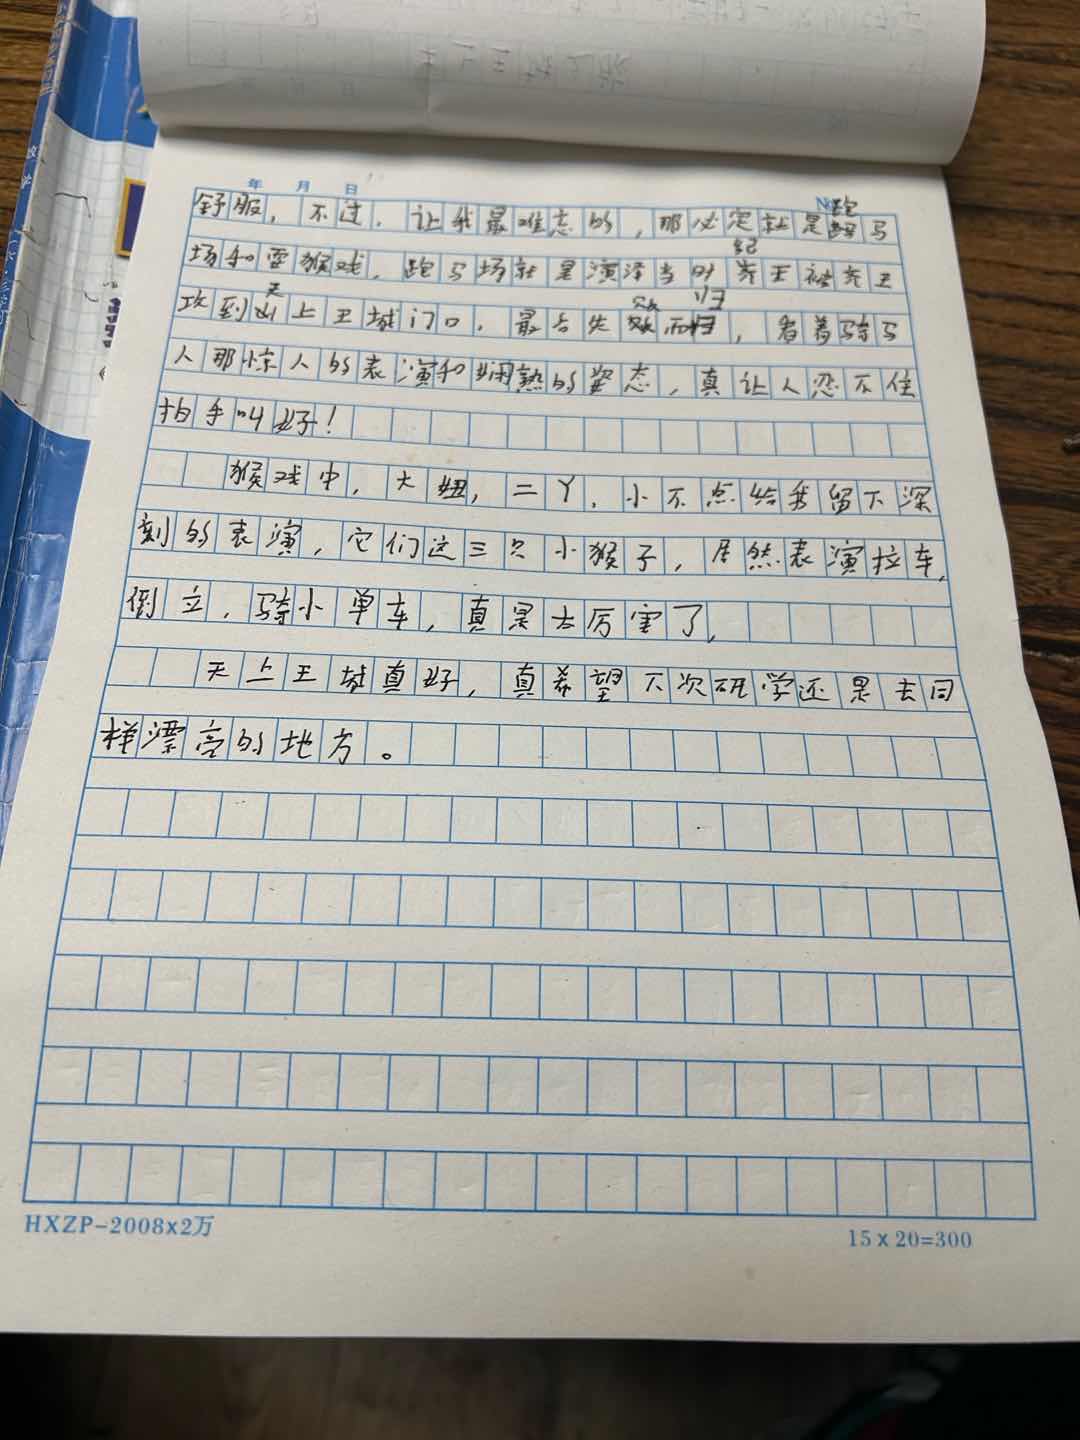 年 月 日
舒服，不过，让我最难忘的，那必定就是跑马
场和耍猴戏，跑马场就是演泽当时 王被 王
攻到天上王城门口，最后失败而归，看着骑马
人那惊人的表演和娴熟的姿态，真让人忍不住
拍手叫好！
猴戏中，大妞，二丫，小不点给我留下深
刻的表演，它们这三只小猴子，居然表演拉车，
倒立，骑小单车，真是太厉害了，
天上王城真好，真希望下次研学还是去同
样漂亮的地方。
HXZP-2008x2万
15x20=300